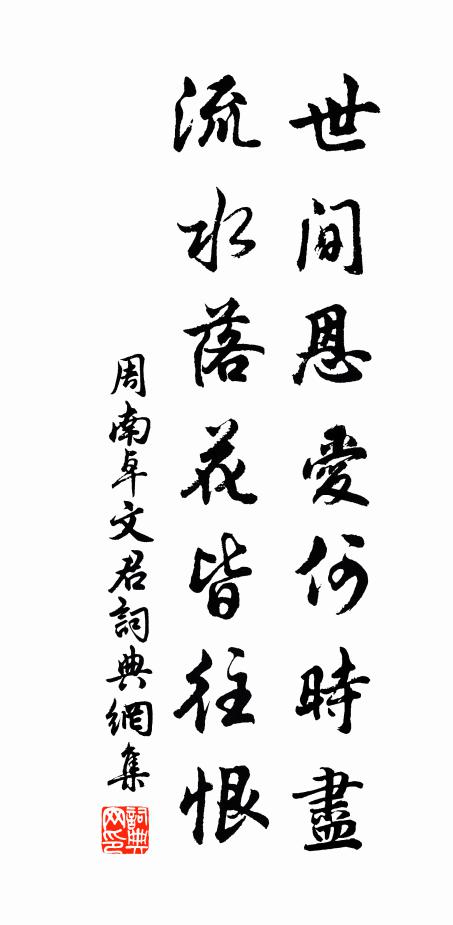 世间恩愛何時盡
流水落花皆往恨
周南卓文君詞典網集
詞典
网印